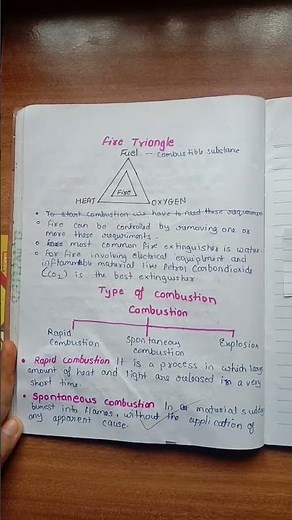 Fire Triangle
Fuel -- combustible substane
Fire
HEAT
OXYGEN
• To start combustion we have to need these requirmen
○ Fire can be controlled by removing one or
more these requirments.
○ most common fire extinguisher is water.
○ For fire involving electrical equipment and
inflammable material like Petrol Carbondioxide
(CO2) is the best extinguisher.
Type of combustion
Combustion
Rapid
Combustion
Spontaneous
combustion
Explosion
• Rapid combustion It is a process in which large
amount of heat and light are released in a very
short time.
• Spontaneous combustion In material sudde
burest into flames, without the application of
any apparent cause.